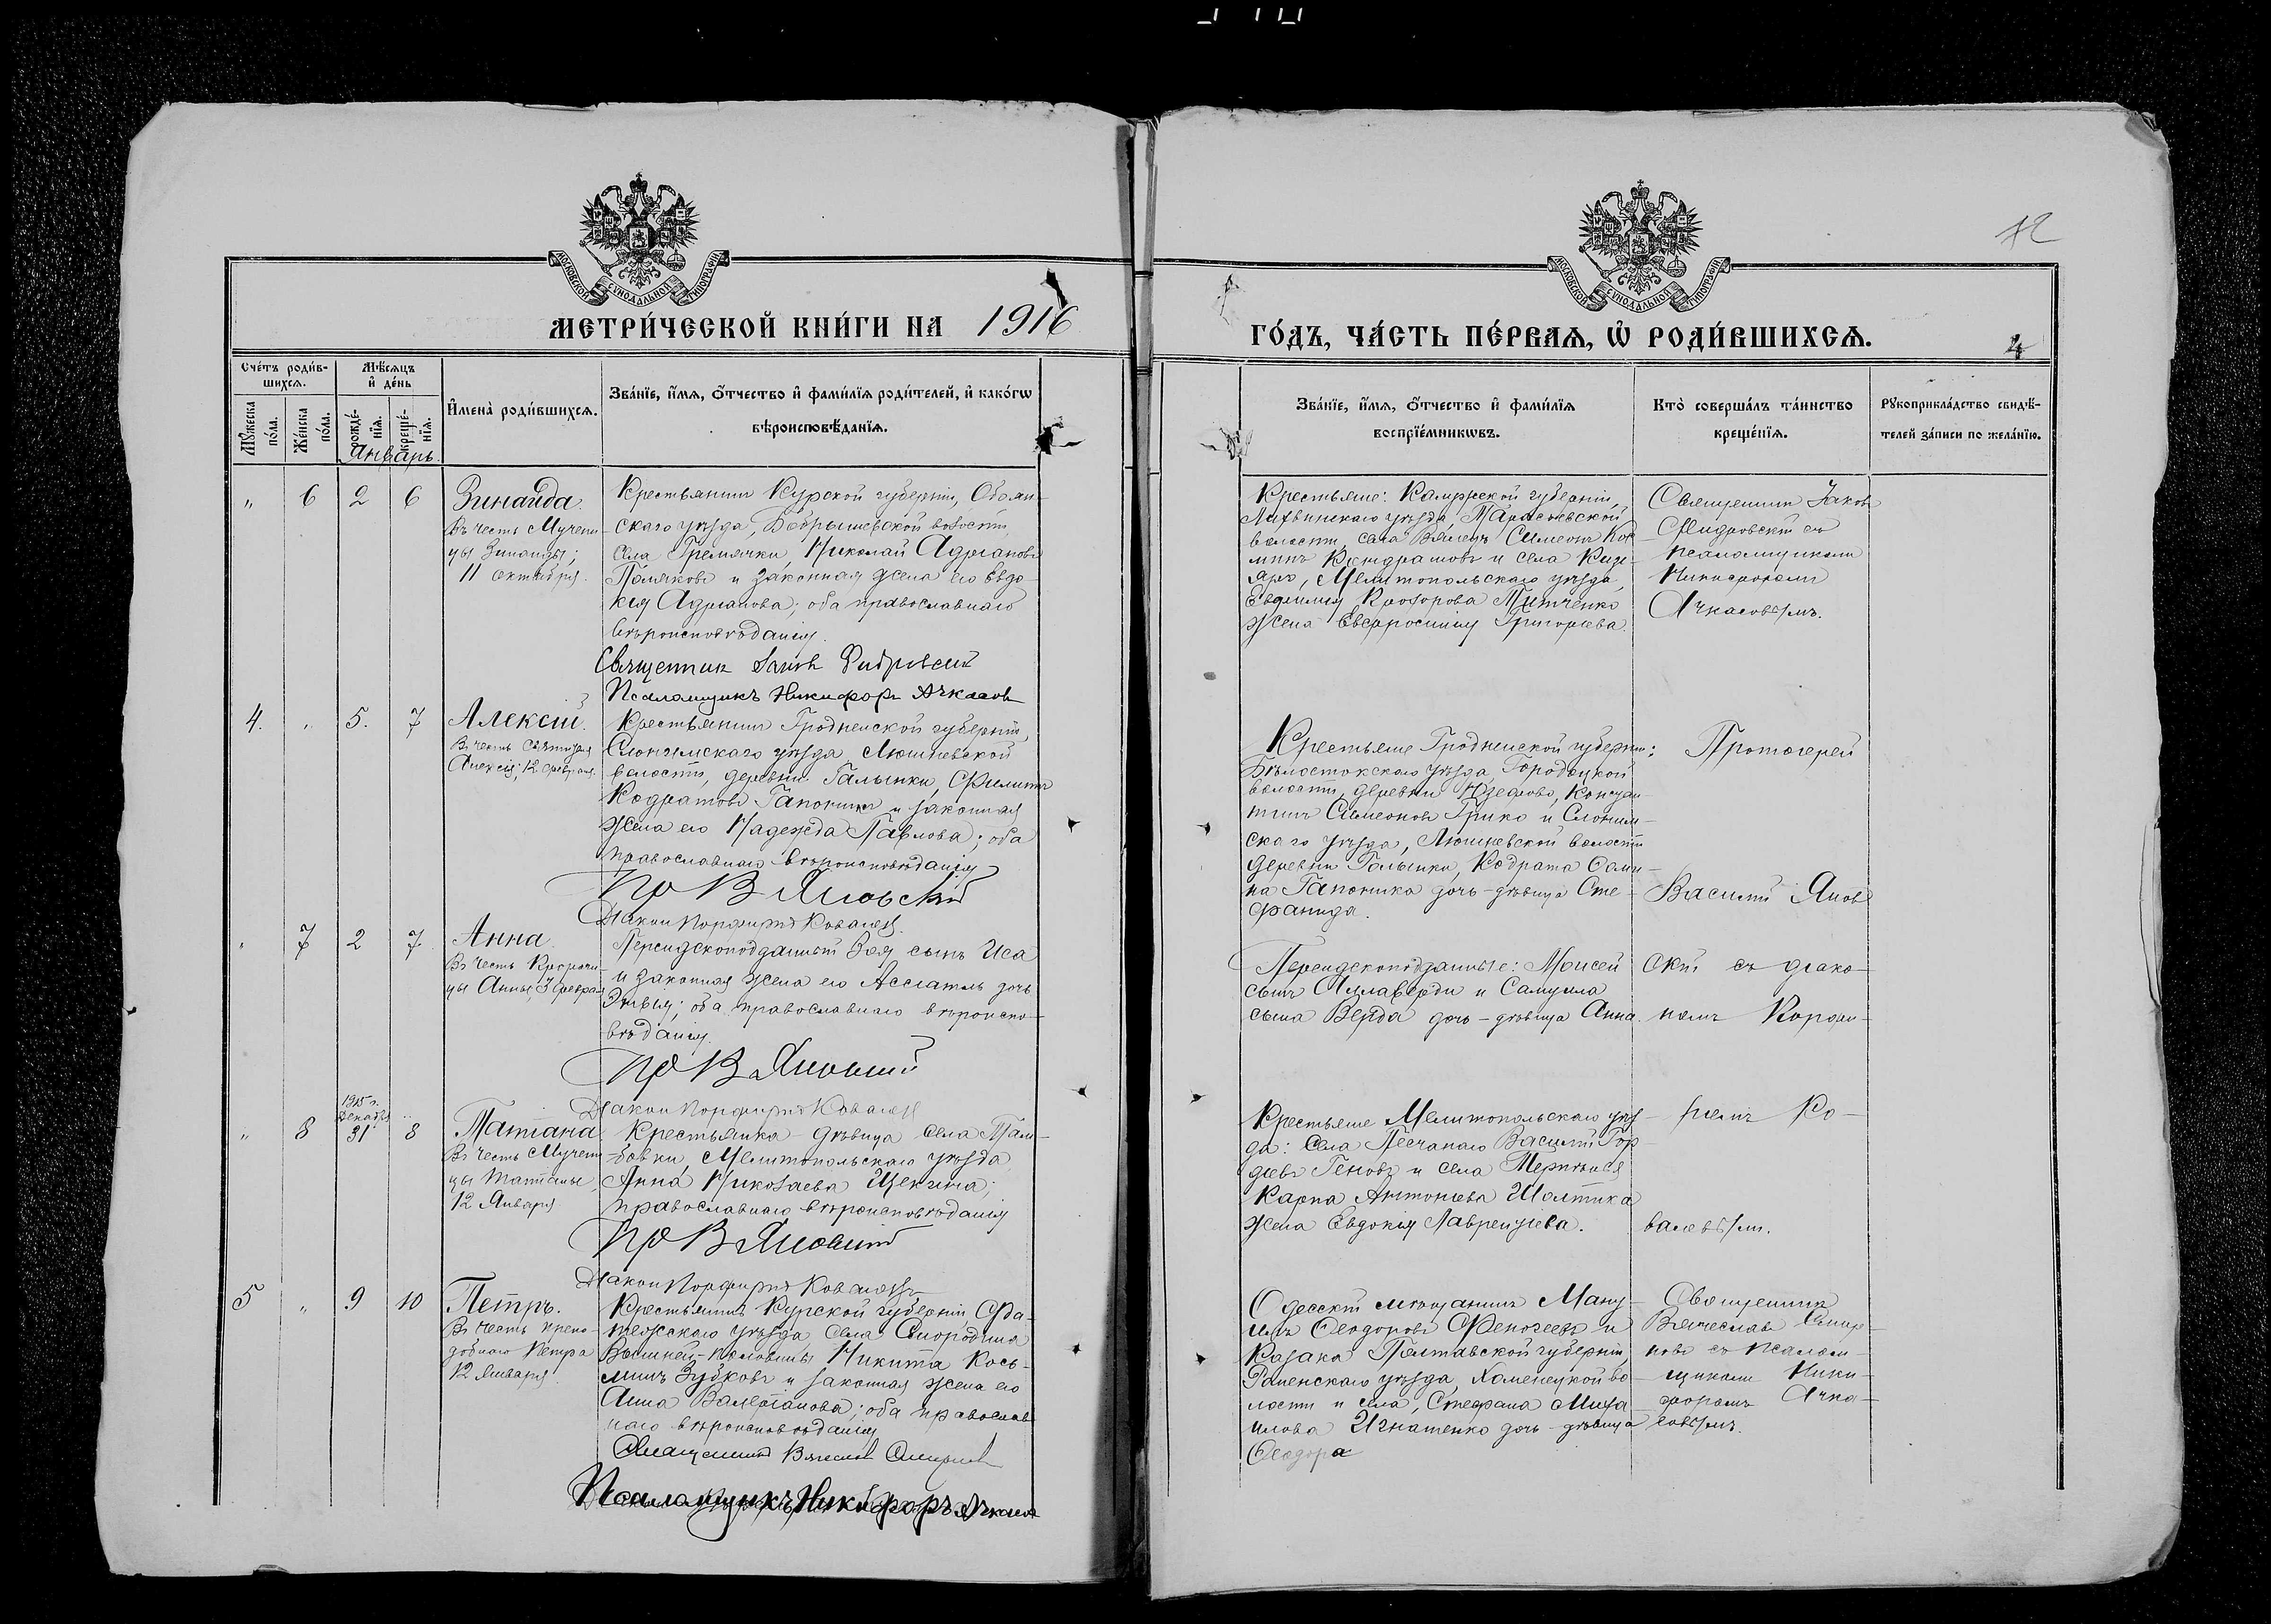 12
МОСКОВСКОЙ СѴНОДАЛЬНОЙ ТИПОГРАФІИ
МОСКОВСКОЙ СѴНОДАЛЬНОЙ ТИПОГРАФІИ
МЕТРИ́ЧЕСКОЙ КНИ́ГИ НА 1916
ГО́ДЪ, ЧА́СТЬ ПЕ́РВАѦ, Ѽ РОДИ́ВШИХСѦ.
4
Сче́тъ роди́в-
шихсѧ.
Мꙋ́жеска
по́ла.
Же́нска
по́ла.
Мѣ́сѧцъ
и҆ де́нь
рожде́-
нїѧ.
креще́-
нїѧ.
Январь.
И҆мена̀ роди́вшихсѧ.
Зва́нїе, и҆́мѧ, ѻ҆́тчество и҆ фами́лїѧ роди́телей, и҆ како́гѡ
вѣроисповѣ́данїѧ.
Зва́нїе, и҆́мѧ, ѻ҆́тчество и҆ фами́лїѧ
воспрїе́мникѡвъ.
Кто̀ соверша́лъ та́инство
креще́нїѧ.
Рꙋкоприкла́дство свидѣ́-
телей за́писи по жела́нїю.
" 6 2 6
Зинаида.
Въ честь Мучени-
цы Зинаиды;
11 октября.
Крестьянинъ Курской губерніи, Обоян-
скаго уѣзда, Бобрышевской волости,
села Гремячки, Николай Адріановъ
Поляковъ и законная жена его Евдо-
кія Адріанова; оба православнаго
вѣроисповѣданія.
Священникъ Іаковъ
Псаломщикъ Никифоръ Ачкасовъ
Крестьяне: Калужской губерніи,
Лихвинскаго уѣзда,
волости, села Симеонъ Коз-
минъ Кондрашовъ и села Кизі-
яръ, Мелитопольскаго уѣзда,
Митченко
жена Евфросинія Григорьева.
Священникъ Іаковъ
съ
псаломщикомъ
Никифоромъ
Ачкасовымъ.
4. " 5. 7
Алексій.
Въ честь Святителя
Алексія; 12 февраля.
Крестьянинъ Гродненской губерніи,
Слонимскаго уѣзда Люшневской
волости, деревни Галынки, Филиппъ
Кодратовъ Гапоникъ и законная
жена его Надежда Павлова; оба
православнаго вѣроисповѣданія
Пр В Яновскій
Діаконъ Порфирій Ковалевъ
Крестьяне Гродненской губерніи:
Бѣлостокскаго уѣзда, Городоцкой
волости, деревни Юзефово, Констан-
тинъ Симеоновъ Грико и Слоним-
скаго уѣзда, Люшневской волости
деревни Галынки, Кодрата
на Гапоника дочь-дѣвица Сте-
фанида.
Протоіерей
Василій Янов
" 7 2 7.
Анна.
Въ честь Пророчи-
цы Анны, 3 февраля
Персидскоподданный Зая сынъ Иса
и законная жена его дочь
оба православнаго вѣроиспо-
вѣданія.
Пр В Яновскій
Діаконъ Порфирій Ковалевъ
Персидскоподданные: Моисей
сынъ Аллаверди и Самуила
сына Верда дочь-дѣвица Анна.
скій съ діако-
номъ Порфи-
" 8 1915 г. Декабрь 31 8
Татіана
Въ честь Мучени-
цы Татіаны,
12 Января
Крестьянка-дѣвица села Там-
бовки, Мелитопольскаго уѣзда,
Анна Николаева Щекина;
православнаго вѣроисповѣданія
Пр В Яновскій
Діаконъ Порфирій Ковалевъ
Крестьяне Мелитопольскаго уѣз-
да: села Песчанаго Василій Гор-
деевъ Геновъ и села Терпѣнія
Карпа Антоніева Шалтика
жена Евдокія Лаврентіева.
ріемъ Ко-
валевымъ.
5 " 9 10
Петръ.
Въ честь препо-
добнаго Петра
12 Января.
Крестьянинъ Курской губерніи, Фа-
тежскаго уѣзда села Смородина
Никита Козь-
минъ Зубковъ и законная жена его
Анна Валеріанова; оба православ-
наго вѣроисповѣданія
Священникъ Вячеславъ Смирновъ
Псаломщикъ Никифоръ Ачкасовъ
Одесскій мѣщанинъМану-
илъ Ѳеодоровъ и
казака Полтавской губерніи,
Роменскаго уѣзда, во-
лости и села, Стефана Миха-
илова Игнатенко дочь-дѣвица
Ѳеодора
Священникъ
Вячеславъ Смир-
новъ съ псалом-
щикомъ Ники-
форомъ Ачка-
совымъ.